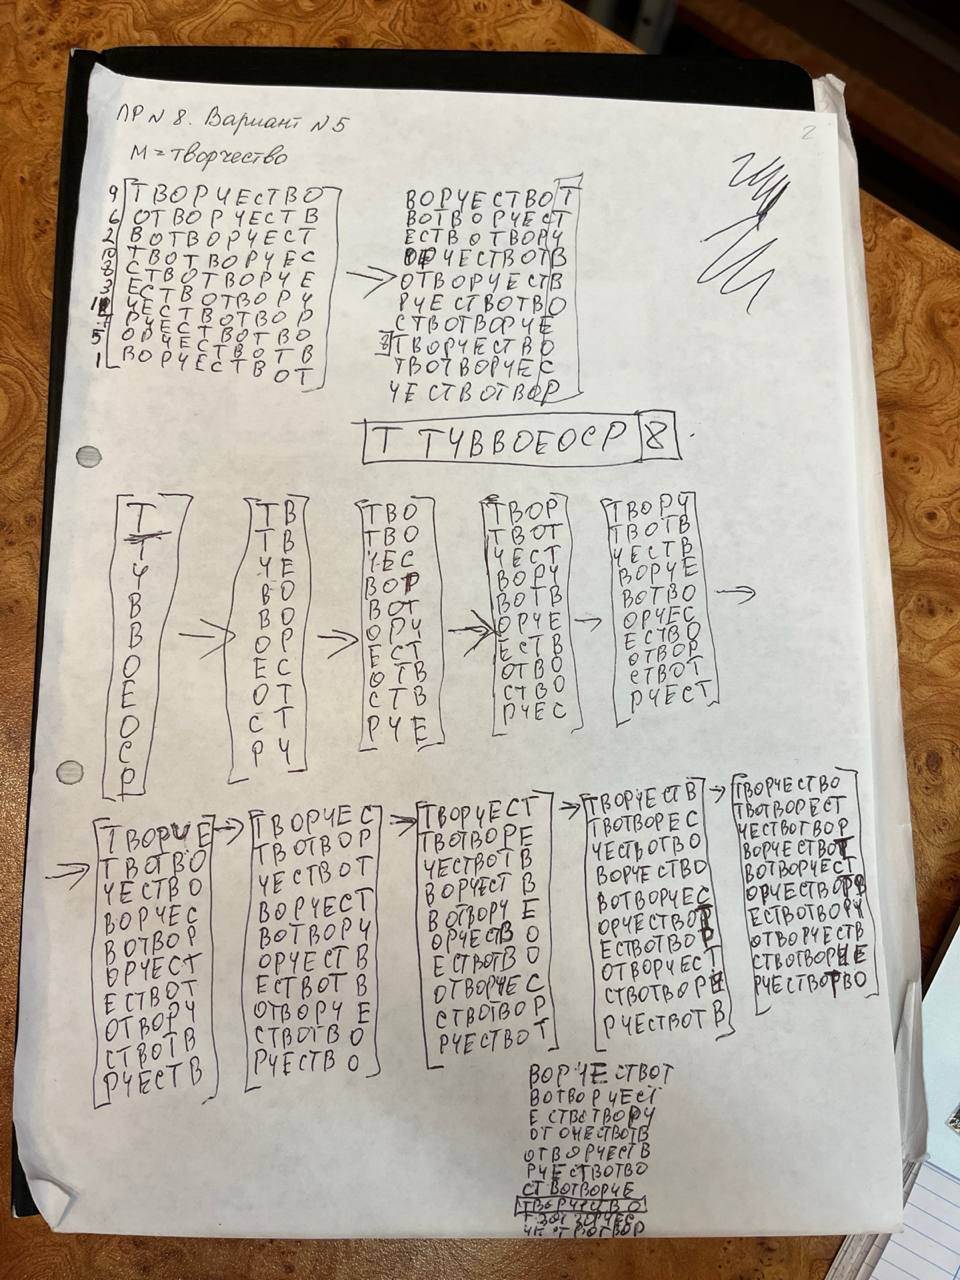 ПР N 8. Вариант N 5
2
М = творчество
9 ТВОРЧЕСТВО
6 ОТВОРЧЕСТВ
2 ВОТВОРЧЕСТ
10 ТВОТВОРЧЕС
8 СТВОТВОРЧЕ
3 ЕСТВОТВОРЧ
ЧЕСТВОТВОР
РЧЕСТВОТВО
5 ОРЧЕСТВОТВ
1 ВОРЧЕСТВОТ
ВОРЧЕСТВОТ
ВОТВОРЧЕСТ
ЕСТВОТВОРЧ
ОРЧЕСТВОТВ
ОТВОРЧЕСТВ
РЧЕСТВОТВО
СТВОТВОРЧЕ
8 ТВОРЧЕСТВО
ТВОТВОРЧЕС
ЧЕСТВОТВОР
Т ТЧВВОЕОСР 8
Т
Т
Ч
В
В
О
Е
О
С
Р
ТВ
ТВ
ЧЕ
ВО
ВО
ОР
ЕС
ОТ
СТ
РЧ
ТВО
ТВО
ЧЕС
ВОР
ВОТ
ОРЧ
ЕСТ
ОТВ
СТВ
РЧЕ
ТВОР
ТВОТ
ЧЕСТ
ВОРЧ
ВОТВ
ОРЧЕ
ЕСТВ
ОТВО
СТВО
РЧЕС
ТВОРЧ
ТВОТВ
ЧЕСТВ
ВОРЧЕ
ВОТВО
ОРЧЕС
ЕСТВО
ОТВОР
СТВОТ
РЧЕСТ
ТВОРЧЕ
ТВОТВО
ЧЕСТВО
ВОРЧЕС
ВОТВОР
ОРЧЕСТ
ЕСТВОТ
ОТВОРЧ
СТВОТВ
РЧЕСТВ
ТВОРЧЕС
ТВОТВОР
ЧЕСТВОТ
ВОРЧЕСТ
ВОТВОРЧ
ОРЧЕСТВ
ЕСТВОТВ
ОТВОРЧЕ
СТВОТВО
РЧЕСТВО
ТВОРЧЕСТ
ТВОТВОРЕ
ЧЕСТВОТВ
ВОРЧЕСТВ
ВОТВОРЧЕ
ОРЧЕСТВО
ЕСТВОТВО
ОТВОРЧЕС
СТВОТВОР
РЧЕСТВОТ
ТВОРЧЕСТВ
ТВОТВОРЕС
ЧЕСТВОТВО
ВОРЧЕСТВО
ВОТВОРЧЕС
ОРЧЕСТВОТ
ЕСТВОТВОР
ОТВОРЧЕСТ
СТВОТВОРЧ
РЧЕСТВОТВ
ТВОРЧЕСТВО
ТВОТВОРЕСТ
ЧЕСТВОТВОР
ВОРЧЕСТВОТ
ВОТВОРЧЕСТ
ОРЧЕСТВОТВ
ЕСТВОТВОРЧ
ОТВОРЧЕСТВ
СТВОТВОРЧЕ
РЧЕСТВОТВО
ВОРЧЕСТВОТ
ВОТВОРЧЕСТ
ЕСТВОТВОРЧ
ОТВОРЧЕСТВ
РЧЕСТВОТВО
СТВОТВОРЧЕ
ТВОРЧЕСТВО